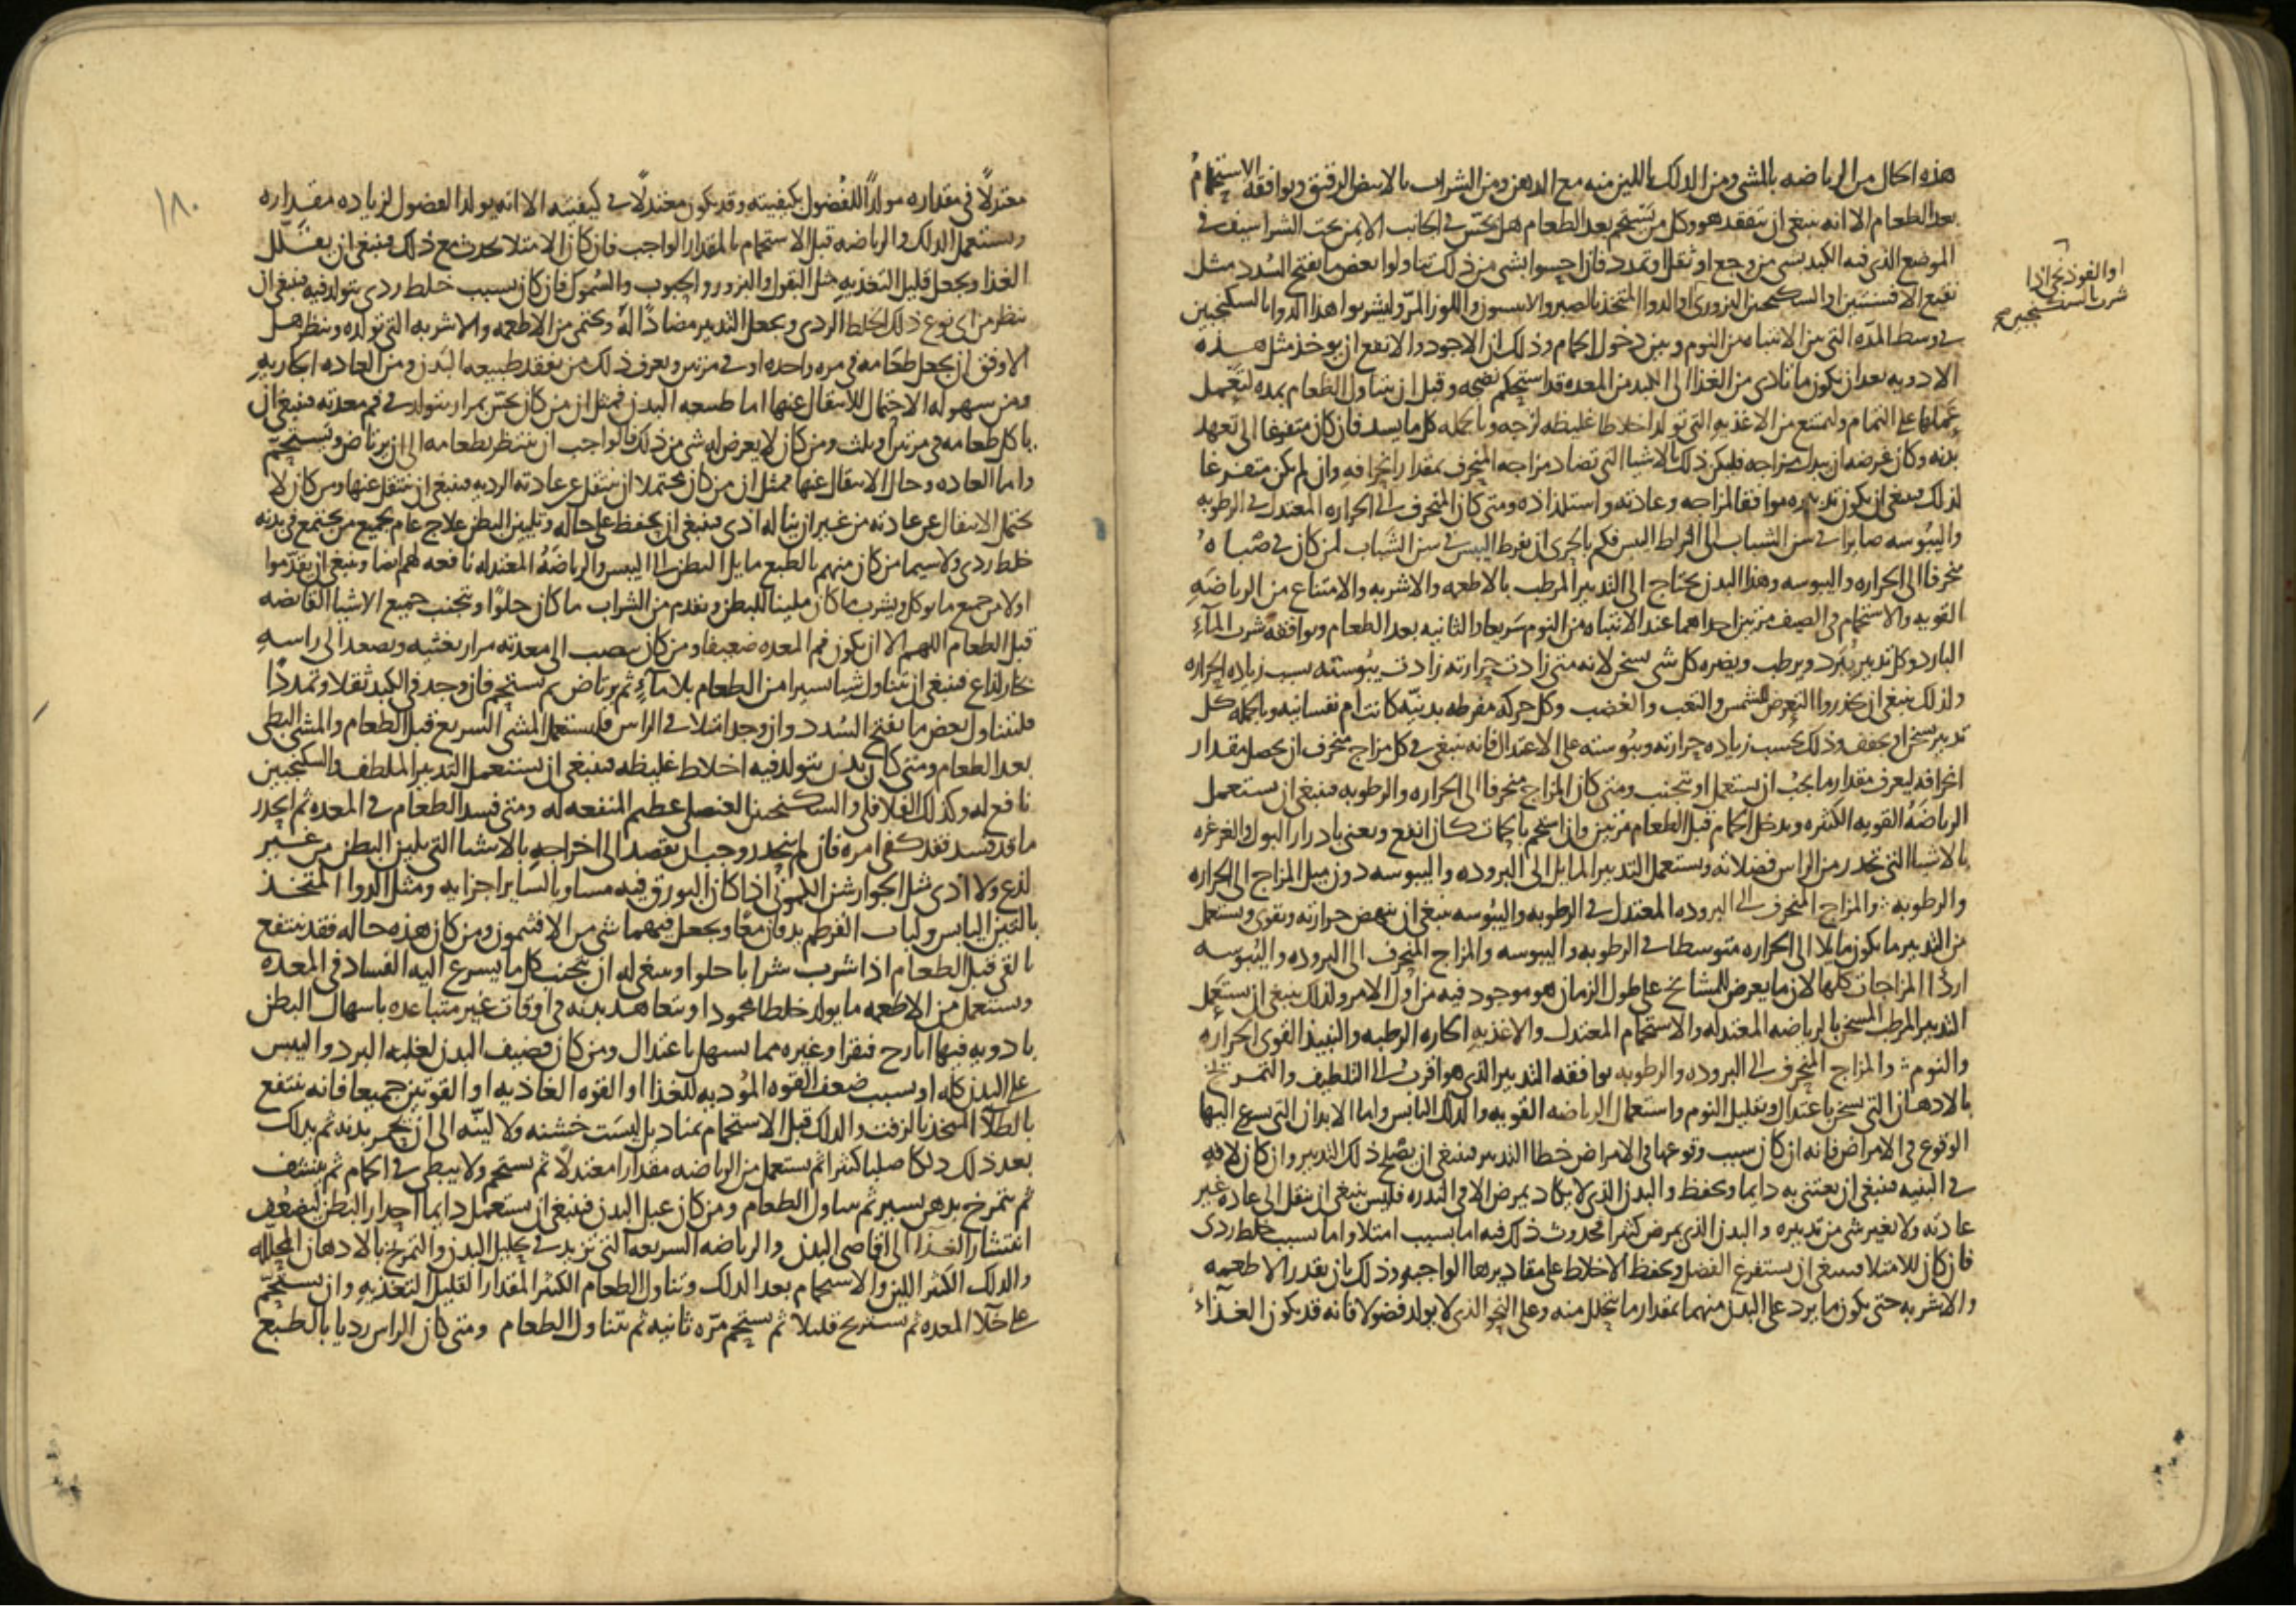 هذه الحال من الرياضه بالمشى ومن الدلك باللين منه مع الدهن ومن الشراب بالابيض الرقيق ويوافقه الاستحمام
بعد الطعام الا انه ينبغى ان يتفقد هو وكل من يستحم بعد الطعام هل يحس فى الجانب الايمن تحت الشراسيف فى
الموضع الذى فيه الكبد بشى من وجع او ثقل او تمدد فان احسوا بشى من ذلك تناولوا بعض ما يفتح السدد مثل
نقيع الافسنتين او السكنجبين البزورى او الدوا المتخذ بالصبر والانيسون واللوز المر وليشربوا هذا الدوا بالسكنجبين
او الفوذنجى اذا
شرب بالسكنجبين صح
فى وسط المده التى بين الانتباه من النوم وبين دخول الحمام وذلك ان الاجود والانفع ان يوخذ مثل هذه
الادويه بعد ان يكون ما تادى من الغذا الى الكبد من المعده قد استحكم نضجه وقبل ان يتناول الطعام بمده لتعمل
عملها على التمام وليمتنع من الاغذيه التى تولد اخلاطا غليظه لزجه وبالجمله كل ما يسدد فان كان متفرغا الى تعهد
بدنه وكان غرضه ان يبدل مزاجه فليكن ذلك بالاشيا التى تضاد مزاجه المنحرف بمقدار انحرافه وان لم يكن متفرغا
لذلك فينبغى ان يكون تدبيره موافقا لمزاجه وعادته واستلذاذه ومتى كان المنحرف الى الحراره المعتدل فى الرطوبه
واليبوسه صايرا فى سن الشباب الى افراط اليبس فكم بالحرى ان يفرط اليبس فى سن الشباب لمن كان فى صباه
منحرفا الى الحراره واليبوسه وهذا البدن يحتاج الى التدبير المرطب بالاطعمه والاشربه والامتناع من الرياضه
القويه والاستحمام فى الصيف مرتين احداهما عند الانتباه من النوم سريعا والثانيه بعد الطعام ويوافقه شرب المآء
البارد وكل تدبير يبرد ويرطب ويضره كل شى يسخن لانه متى زادت حرارته زادت يبوسته بسبب زياده الحراره
ولذلك ينبغى ان يحذروا التعرض للشمس والتعب والغضب وكل حركه مفرطه بدنيه كانت ام نفسانيه وبالجمله كل
تدبير يسخن او يجفف وذلك بحسب زياده حرارته ويبوسته على الاعتدال فانه ينبغى فى كل مزاج منحرف ان يحصل مقدار
انحرافه ليعرف مقدار ما يجب ان يستعمل او يتجنب ومتى كان المزاج منحرفا الى الحراره والرطوبه فينبغى ان يستعمل
الرياضه القويه الكثيره ويدخل الحمام قبل الطعام مرتين وان استحم بالحمات كان انفع ويعنى بادرار البول والغرغره
بالاشيا التى تحدر من الراس فضلاته ويستعمل التدبير المايل الى البروده واليبوسه دون ميل المزاج الى الحراره
والرطوبه والمزاج المنحرف الى البروده المعتدل فى الرطوبه واليبوسه ينبغى ان ينهض حرارته ويقوى ويستعمل
من التدبير ما يكون مايلا الى الحراره متوسطا فى الرطوبه واليبوسه والمزاج المنحرف الى البروده واليبوسه
اردٔا المزاجات كلها لان ما يعرض للمشايخ على طول الزمان هو موجود فيه من اول الامر ولذلك ينبغى ان يستعمل
التدبير المرطب المسخن بالرياضه المعتدله والاستحمام المعتدل والاغذيه الحاره الرطبه والنبيذ القوى الحراره
والنوم والمزاج المنحرف الى البروده والرطوبه يوافقه التدبير الذى هو اقرب الى التلطيف والتمريخ
بالادهان التى تسخن باعتدال وتقليل النوم واستعمال الرياضه القويه والدلك اليابس واما الابدان التى يسرع اليها
الوقوع فى الامراض فانه ان كان سبب وقوعها فى الامراض خطا التدبير فينبغى ان يصلح ذلك التدبير وان كان لافه
فى البنيه فينبغى ان يعتنى به دايما ويحفظ والبدن الذى لا يكاد يمرض الا فى الندره فليس ينبغى ان ينقل الى عاده غير
عادته ولا يغير شى من تدبيره والبدن الذى يمرض كثيرا فحدوث ذلك فيه اما بسبب امتلا واما بسبب خلط ردى
فان كان للامتلا فينبغى ان يستفرغ الفضل ويحفظ الاخلاط على مقاديرها الواجبه وذلك بان يقدر الاطعمه
والاشربه حتى يكون ما يرد على البدن منهما بمقدار ما يتحلل منه وعلى النحو الذى لا يولد فضولا فانه قد يكون الغذآء
١٨٠
معتدلًا فى مقداره مولدًا للفضول بكيفيته وقد يكون معتدلًا فى كيفيته الا انه يولد الفضول لزياده مقداره
ويستعمل الدلك والرياضه قبل الاستحمام بالمقدار الواجب فان كان الامتلا يحدث مع ذلك فينبغى ان يقلل
الغذا ويجعل قليل التغذيه مثل البقول والبزور والحبوب والسموك فان كان بسبب خلط ردى يتولد فيه فينبغى ان
ينظر من اى نوع ذلك الخلط الردى ويجعل التدبير مضادًا له ويحتمى من الاطعمه والاشربه التى تولده وينظر هل
الاوفق ان يجعل طعامه فى مره واحده او فى مرتين ويعرف ذلك من تفقد طبيعه البدن ومن العاده الجاريه
ومن سهوله الاحتمال للانتقال عنها اما طبيعه البدن فمثل ان من كان يحس بمرار يتولد فى فم معدته فينبغى ان
ياكل طعامه فى مرتين او ثلث ومن كان لا يعرض له شى من ذلك فالواجب ان ينتظر بطعامه الى ان يرتاض ويستحم
واما العاده وحال الانتقال عنها فمثل ان من كان محتملا ان ينتقل عن عادته الرديه فينبغى ان ينتقل عنها ومن كان لا
يحتمل الانتقال عن عادته من غير ان يناله اذى فينبغى ان يحفظ على حاله وتليين البطن علاج عام لجميع من يجتمع فى بدنه
خلط ردى ولا سيما من كان منهم بالطبع مايل البطن الى اليبس والرياضه المعتدله نافعه لهم ايضا وينبغى ان يقدموا
اولا من جميع ما يوكل ويشرب ما كان ملينا للبطن ويقدم من الشراب ما كان حلوًا ويتجنب جميع الاشيا القابضه
قبل الطعام اللهم الا ان يكون فم المعده ضعيفا ومن كان ينصب الى معدته مرار يغثيه ويصعد الى راسه
بخار لذاع فينبغى ان يتناول شيا يسيرا من الطعام بلا مآء ثم يرتاض ثم يستحم فان وجد فى الكبد ثقلا وتمددًا
فليتناول بعض ما يفتح السدد وان وجد امتلا فى الراس فليستعمل المشى السريع قبل الطعام والمشى البطى
بعد الطعام ومتى كان بدن يتولد فيه اخلاط غليظه فينبغى ان يستعمل التدبير الملطف والسكنجبين
نافع له وكذلك الفلافلى والسكنجبين العنصلى عظيم المنفعه له ومتى فسد الطعام فى المعده ثم انحدر
ما قد فسد فقد كفى امره فان لم ينحدر وجب ان يقصد الى اخراجه بالاشيا التى تلين البطن من غير
لذع ولا اذى مثل الجوارشن الكمونى اذا كان البورق فيه مساويا لساير اجزايه ومثل الدوا المتخذ
بالتين اليابس ولباب القرطم يدقان معًا ويجعل فيهما شى من الافثيمون ومن كان هذه حاله فقد ينتفع
بالقى قبل الطعام اذا شرب شرابا حلوا وينبغى له ان يتجنب كل ما يسرع اليه الفساد فى المعده
ويستعمل من الاطعمه ما يولد خلطا محمودا ويتعاهد بدنه فى اوقات غير متباعده باسهال البطن
بادويه فيها ايارج فيقرا وغيره مما يسهل باعتدال ومن كان قضيف البدن لغلبه البرد واليبس
على البدن كله او بسبب ضعف القوه المؤديه للغذا او القوه الغاذيه او القوتين جميعا فانه ينتفع
بالطلآ المتخذ بالزفت والدلك قبل الاستحمام بمناديل ليست خشنه ولا لينه الى ان يحمر بدنه ثم يدلك
بعد ذلك دلكا صلبا كثيرا ثم يستعمل من الرياضه مقدارا معتدلًا ثم يستحم ولا يبطى فى الحمام ثم ينشف
ثم يتمرخ بدهن يسير ثم يتناول الطعام ومن كان عبل البدن فينبغى ان يستعمل دايما احدار البطن ليضعف
انتشار الغذا الى اقاصى البدن والرياضه السريعه التى تزيد فى تحليل البدن والتمريخ بالادهان المحلله
والدلك الكثير اللين والاستحمام بعد الدلك وتناول الطعام الكثير المقدار القليل التغذيه وان يستحم
على خلآ المعده ثم يستريح قليلا ثم يستحم مرّه ثانيه ثم يتناول الطعام ومتى كان الراس رديا بالطبع